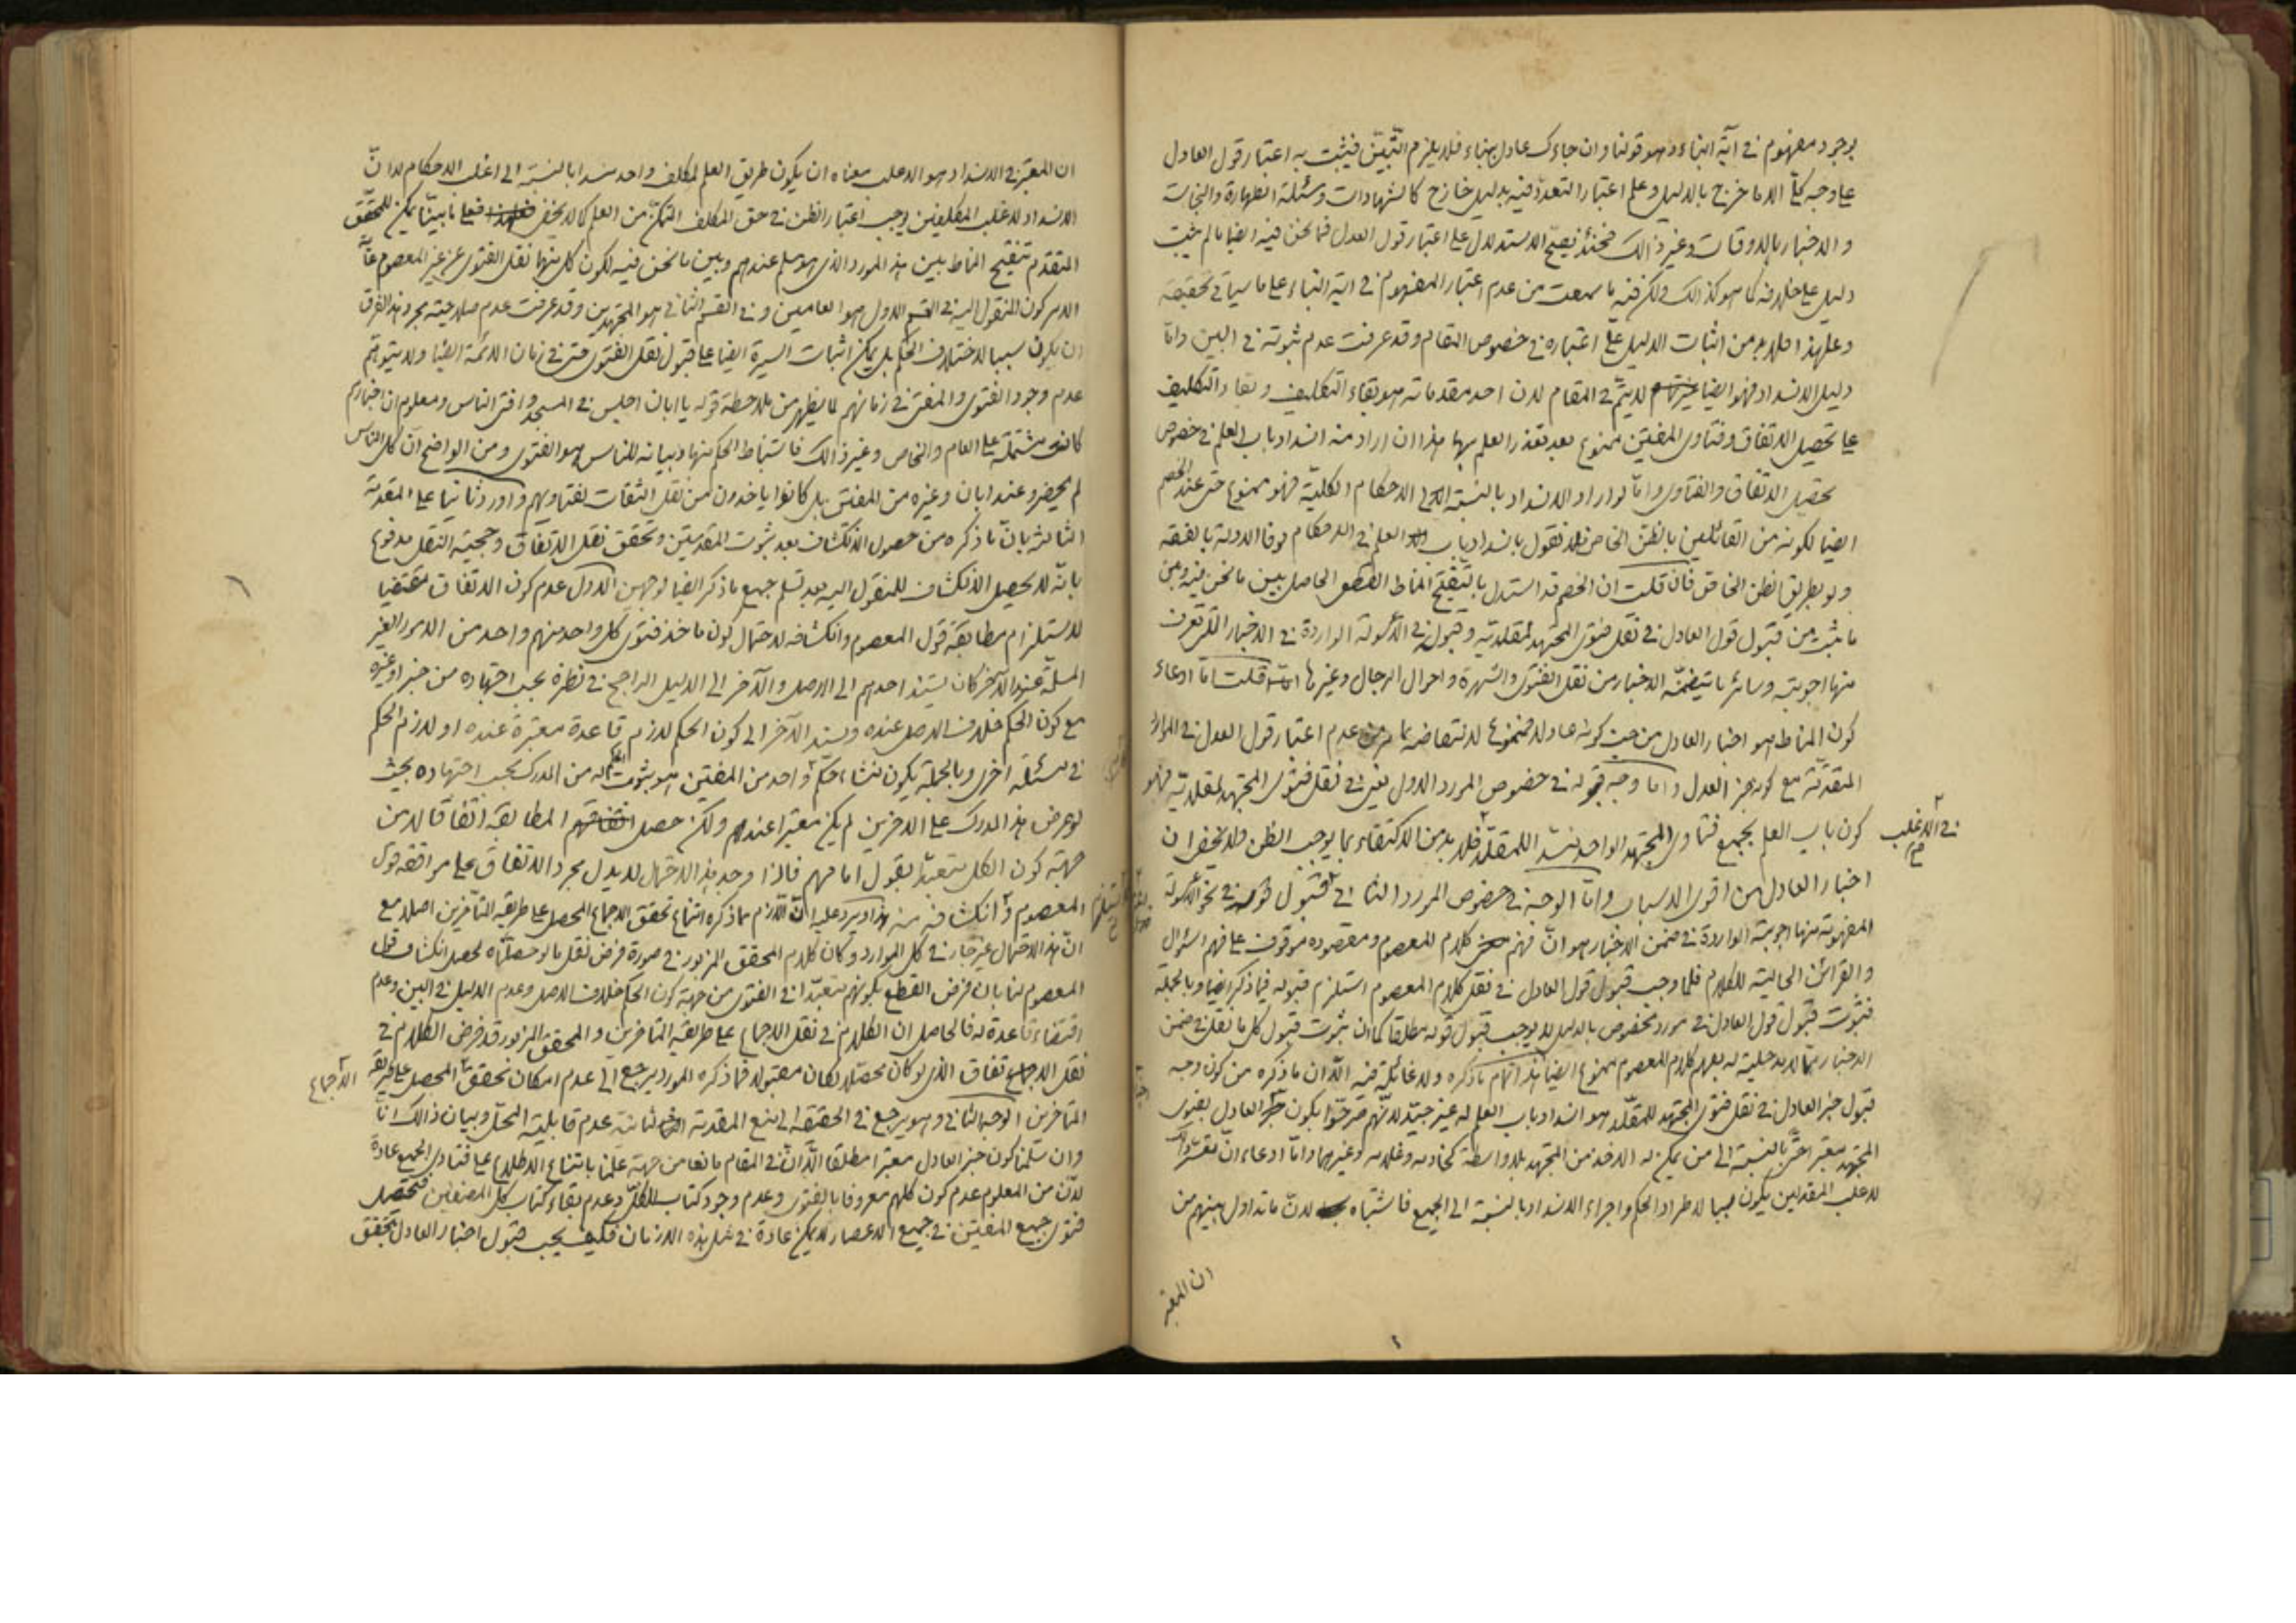 بوجود مفهوم في آية النباء وهو قولنا وان جاءك عادل بنباء فلا يلزم التبيّن فيثبت به اعتبار قول العادل
على وجه كلّي الا ما خرج بالدليل وعلم اعتبار التعدّد فيه بدليل خارج كالشهادات ومسئلة الطهارة والنجاسة
والاخبار بالاوقات وغير ذالك فحينئذ يصحّ الاستدلال على اعتبار قول العدل فيما نحن فيه ايضا ما لم يثبت
دليل على خلافه كما هو كذالك ولكن فيه ما سمعت من عدم اعتبار المفهوم في اية النباء على ما سياتي تحقيقه
وعلى هذا فلابد من اثبات الدليل على اعتباره في خصوص المقام وقد عرفت عدم ثبوته في البين وامّا
دليل الانسداد فهو ايضا لا يتمّ في المقام لان احد مقدماته هو بقاء التكليف وبقاء التكليف
على تحصيل الاتفاق وفتاوى المفتين ممنوع بعد تعذر العلم بها هذا ان اراد منه انسداد باب العلم في خصوص
تحصيل الاتفاق والفتاوى وامّا لو اراد الانسداد بالنسبة الى الاحكام الكليّة فهو ممنوع حتى عند الخصم
ايضا لكونه من القائلين بالظن الخاص فلا نقول بانسداد باب العلم في الاحكام لوفا الادلة بالفقه
ولو بطريق الظن الخاص فان قلت ان الخصم قد استدل بالتنقيح المناط القطعي الحاصل بين ما نحن فيه وبين
ما يثبت من قبول قول العادل في نقل فتوى المجتهد لمقلديه وقبوله في الاسولة الواردة في الاخبار التي تعرف
منها اجوبته وسائر ما تيضمّنه الاخبار من نقل الفتوى والشهرة واحوال الرجال وغيرها قلت امّا ادعاء
كون المناط هو اخبار العادل من حيث كونه عادلا فممنوع لانتقاضه بما مر من عدم اعتبار قول العدل في الموارد
المتقدّمة مع كونه خبر العدل وامّا وجه قبوله في خصوص المورد الاول يعني في نقل فتوى المجتهد لمقلديه فهو
كون باب العلم بجميع فتاوى المجتهد الواحد منسد اللمقلّد فلابد من الاكتفاء بما يوجب الظن ولا يخفى ان
في الاغلب
اخبار العادل من اقوى الاسباب وامّا الوجه في خصوص المورد الثاني فقبول قوله في نحو الاسولة
المفهومة منها اجوبته الواردة في ضمن الاخبار هو انّ فهم كلام المعصوم ومقصوده موقوف على فهم السئوال
والقرائن الحالية للكلام فلما وجب قبول قول العادل في نقل كلام المعصوم استلزم قبوله فيما ذكر ايضا وبالجملة
فثبوت قبول قول العادل في مورد مخصوص بالدليل لا يوجب قبول قوله مطلقا كما ان ثبوت قبول كل ما نقل في ضمن
الاخبار ممّا لا مدخلية له بفهم كلام المعصوم ممنوع ايضا هذا تمام ما ذكره ولا غائلة فيه الّا ان ما ذكره من كون وجه
قبول خبر العادل في نقل فتوى المجتهد للمقلّد هو انسداد باب العلم له غير جيّد لانّهم صرّحوا بكون خبر العادل بفتوى
المجتهد معتبر حتّى بالنسبة الى من يمكن له الاخذ من المجتهد بلا واسطة كخادمه وغلامه وغيرهما وامّا ادعاء انّ
لاغلب المقلدين يكون سببا لاطراد الحكم واجراء الانسداد بالنسبة الى الجميع فاشتباه لانّ ما تداول بينهم من
ان المعتبر
ان المعتبر في الانسداد هو الاغلب معناه ان يكون طريق العلم لمكلف واحد منسدا بالنسبة الى اغلب الاحكام لا انّ
الانسداد لاغلب المكلفين يوجب اعتبار الظن في حق المكلف المتمكّن من العلم كما لا يخفى فعلى ما بيّنا يمكن للمحقّق
المتقدم تنقيح المناط بين هذا المورد الذي هو مسلم عندهم وبين ما نحن فيه لكون كل منهما نقل الفتوى عن غير المعصوم غاية
الامر كون المنقول اليه في القسم الاول هو العاميين وفي القسم الثاني هو المجتهدين وقد عرفت عدم صلاحيته بمجرد هذا الفرق
ان يكون سببا لاختلاف الحكم بل يمكن اثبات السيرة ايضا على قبول نقل الفتوى حتى في زمان الائمّة ايضا ولا يتوهّم
عدم وجود الفتوى والمفتي في زمانهم لما يظهر من ملاحظة قوله يا ابان اجلس في المسجد وافتى الناس ومعلوم ان اخبارهم
كانت مشتملة على العام والخاص وغير ذالك فاستنباط الحكم منها وبيانه للناس هو الفتوى ومن الواضح انّ كل الناس
لم يحضروا عند ابان وغيره من المفتى بل كانوا ياخذون من نقل الثقات لفتاويهم واورد ثانيا على المقدمة
الثالثة بانّ ما ذكره من حصول الانكشاف بعد ثبوت المقدمتين وتحقق نقل الاتفاق وحجية النقل مدفوع
بانّه لا يحصل الانكشاف للمنقول اليه بعد تسلم جميع ما ذكر ايضا لوجهين الاول عدم كون الاتفاق مقتضيا
للاستلزام مطابقة قول المعصوم وانكشافه لاحتمال كون ماخذ فتوى كل واحد منهم واحد من الامور الغير
المسلّمة عند الآخر كان يستند احدهم الى الاصل والآخر الى الدليل الراجح في نظره بحسب اجتهاده من خبر او غيره
مع كون الحكم خلاف الاصل عنده ويستند الآخر الى كون الحكم لازم قاعدة معتبرة عنده او لازم الحكم
في مسئلة اخرى وبالجملة يكون منشاء حكم واحد من المفتين هو ثبوت الحكم له من المدرك بحسب اجتهاده بحيث
لو عرض هذا المدرك على الاخرين لم يكن معتبرا عندهم ولكن حصل المطابقة اتفاقا لا من
جهة كون الكل متعبدا بقول امامهم فاذا وجد هذا الاحتمال لا يدل مجرد الاتفاق على موافقه قول
المعصوم وانكشافه منه هذا ويرد عليه انّ اللّازم مما ذكره امتناع تحقق الاجماع المحصل على طريقه المتاخرين اصلا مع
انّ هذا الاحتمال غير جار في كل الموارد وكان كلام المحقق المزبور في صورة فرض نقل ما لو حصلّناه لحصل انكشاف قول
المعصوم لنا بان فرض القطع بكونهم متعبّدا في الفتوى من جهة كون الحكم خلاف الاصل وعدم الدليل في البين وعدم
اقتضاء قاعدة له فالحاصل ان الكلام في نقل الاجماع على طريقه المتاخرين والمحقق المزبور قد فرض الكلام في
نقل الاتفاق الذي لو كان محصّلا لكان مقبولا فما ذكره المورد يرجع الى عدم امكان تحقق المحصل على طريقه
الاجماع
المتاخرين الوجه الثاني وهو يرجع في الحقيقة الى منع المقدمة الثانية عدم قابلية المحلّ وبيان ذالك انا
وان سلّمنا كون خبر العادل معتبرا مطلقا الّا انّ في المقام مانعا من جهة علمنا بامتناع الاطلاع على فتاوى الجميع عادة
لانّ من المعلوم عدم كون كلهم معروفا بالفتوى وعدم وجود كتاب للكلّ وعدم بقاء كتاب كل المصنفين فتحصيل
فتوى جميع المفتين في جميع الاعصار لا يمكن عادة في مثل هذه الازمان فكيف يجب قبول اخبار العادل بتحقق